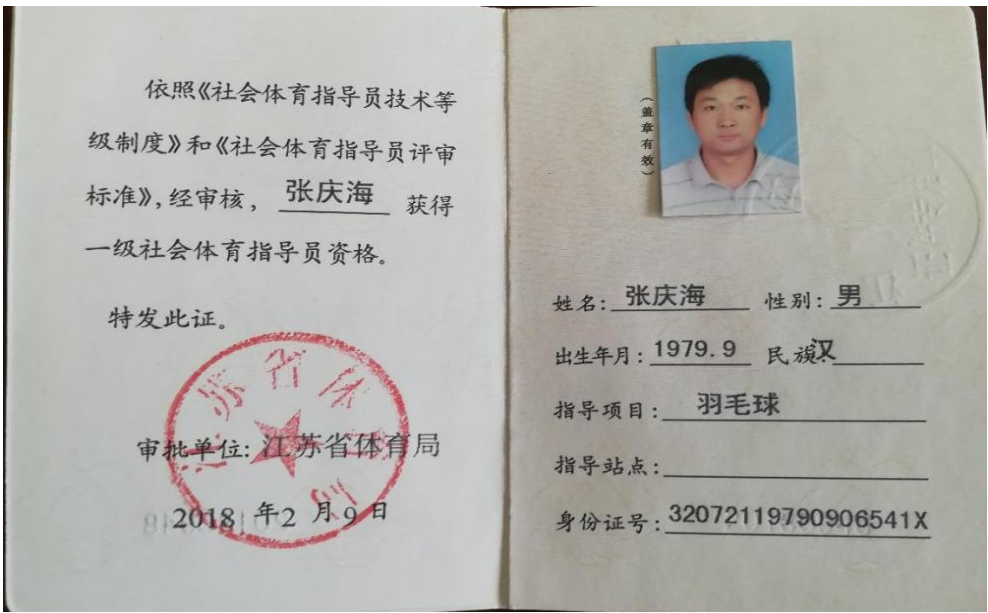 依照《社会体育指导员技术等
级制度》和《社会体育指导员评审
标准》，经审核， 张庆海 获得
一级社会体育指导员资格。
特发此证。
江苏省体育局
审批单位：江苏省体育局
2018 年2 月9 日
（盖章有效）
姓名：张庆海 性别：男
出生年月：1979.9 民族：汉
指导项目： 羽毛球
指导站点：
身份证号：32072119790906541X